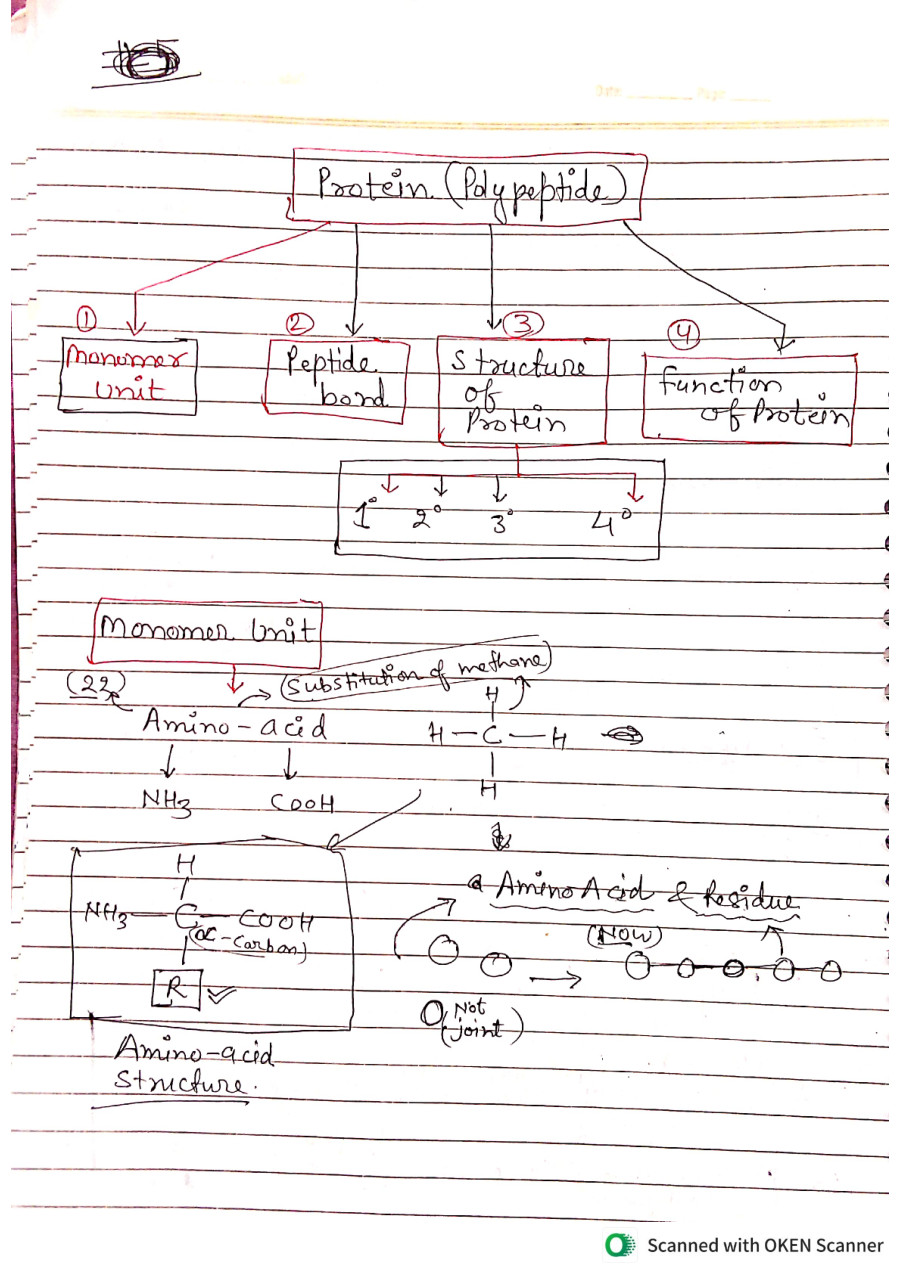 Date Page
Protein (Polypeptide)
① ② ③ ④
Monomer Unit
Peptide bond
Structure of Protein
function of Protein
1° 2° 3° 4°
Monomer Unit
(22) (Substitution of methane)
Amino-acid
NH3 COOH
H
H—C—H
H
H
NH3—C—COOH
(α-Carbon)
R
Amino-acid
Structure.
Amino Acid & Residue
(NOW)
(Not joint)
Scanned with OKEN Scanner